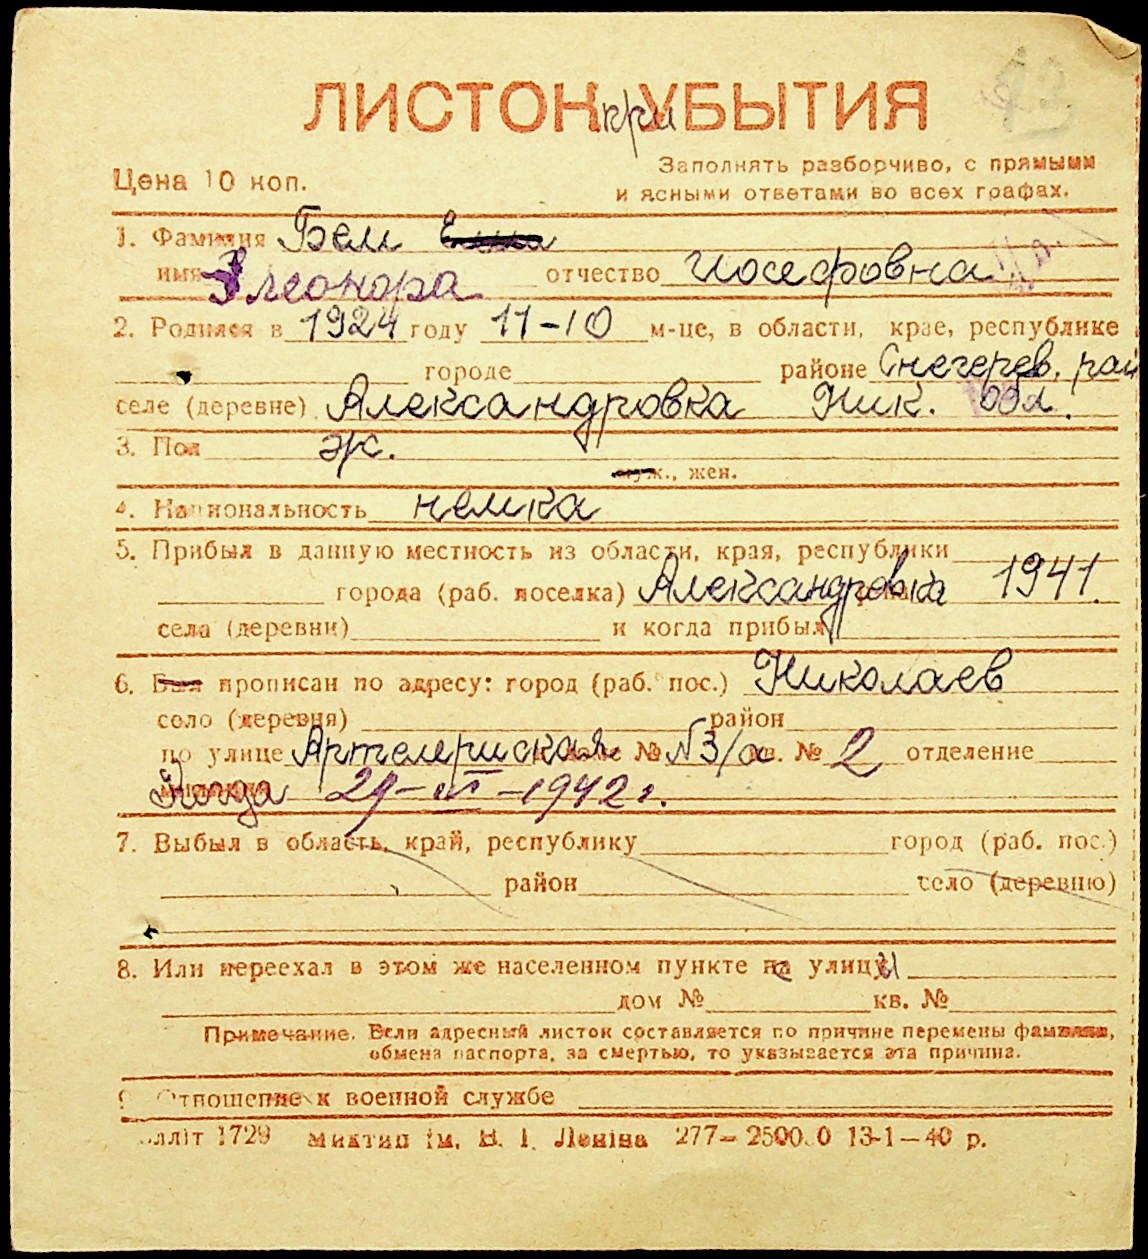 ЛИСТОК при УБЫТИЯ
Цена 10 коп.
Заполнять разборчиво, с прямыми
и ясными ответами во всех графах.
1. Фамилия Бем
имя Элеонора отчество Иосефовна
2. Родился в 1924 году 11-10 м-це, в области, крае, республике
городе районе Снегерев. рай
селе (деревне) Александровка Ник. обл.
3. Пол ж.
муж., жен.
4. Национальность немка
5. Прибыл в данную местность из области, края, республики
города (раб. поселка) Александровка 1941.
села (деревни) и когда прибыл
6. Был прописан по адресу: город (раб. пос.) Николаев
село (деревня) район
по улице Артелериская № N3/а кв. № 2 отделение
Когда 29-III-1942 г.
7. Выбыл в область, край, республику город (раб. пос.)
район село (деревню)
8. Или переехал в этом же населенном пункте с улицы
дом № кв. №
Примечание. Если адресный листок составляется по причине перемены фамилии,
обмена паспорта, за смертью, то указывается эта причина.
9. Отношение к военной службе
лліт 1729 Миктип ім. В. І. Леніна 277—2500.0 13-1—40 р.